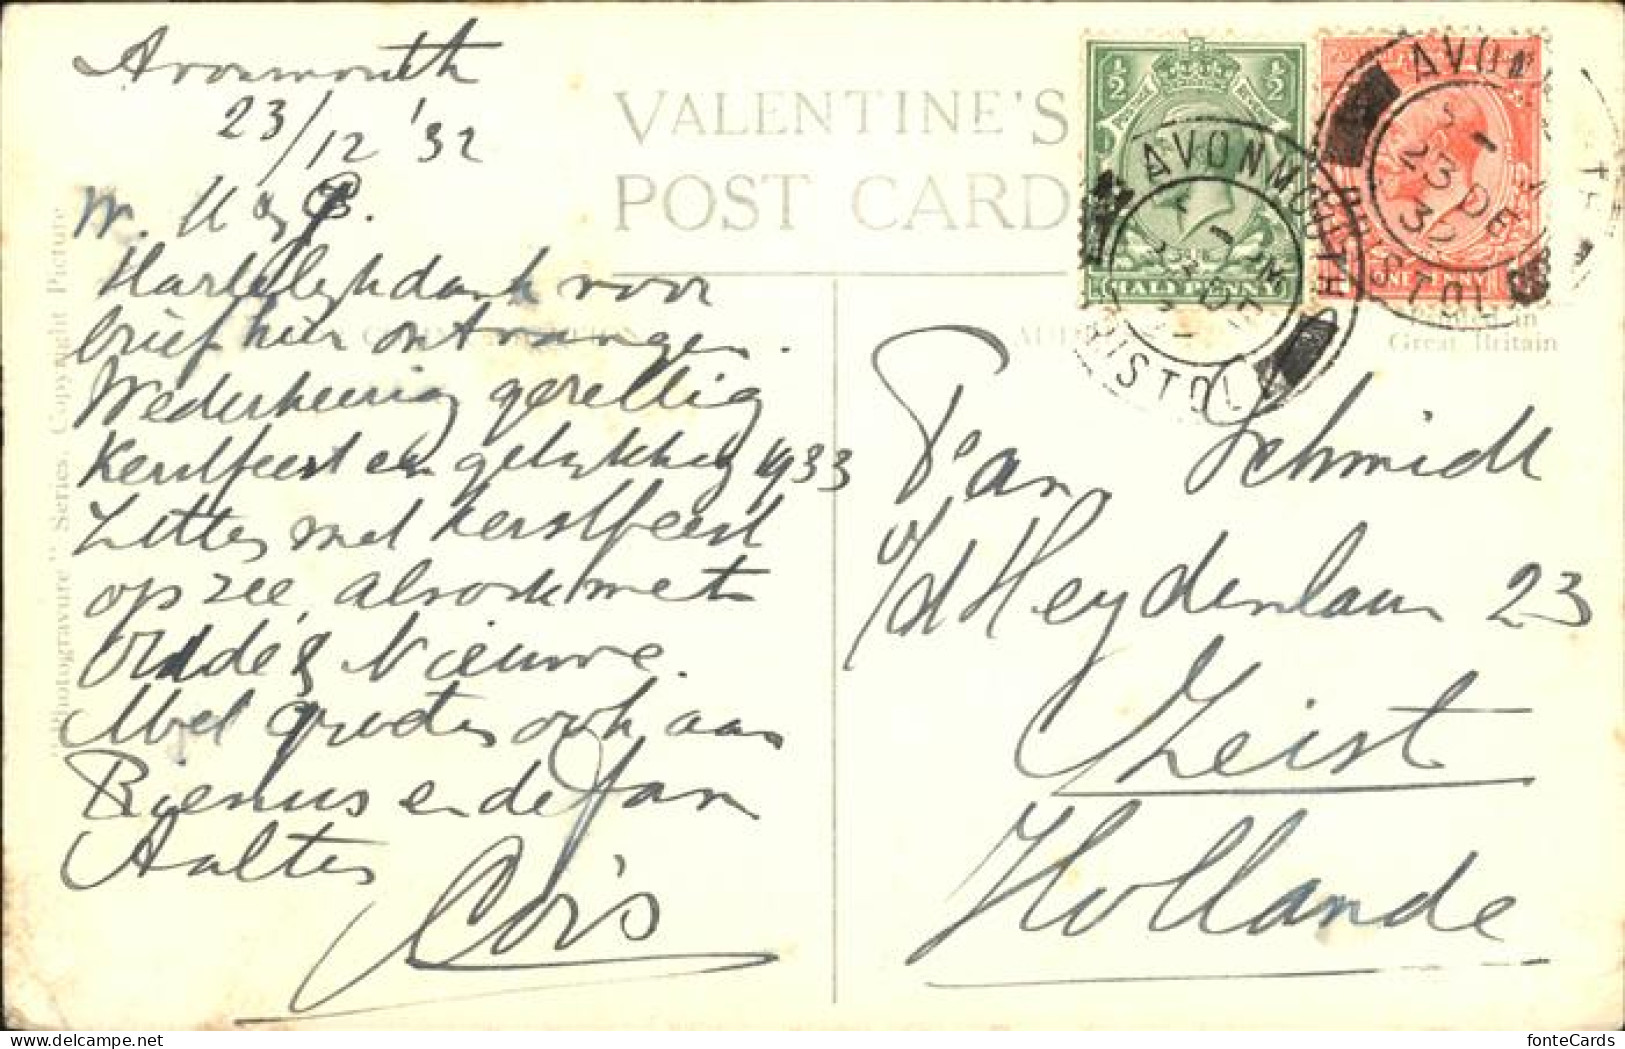 Avonmouth
23/12 '32
W. M & P.
Hartelijk dank voor
brief hier ontvangen.
Wederkeerig gezellig
Kerstfeest en gelukkig 1933
Zitten met Kerstfeest
op zee, alsook met
Oud & Nieuwe.
Veel groeten ook aan
Rienus en de Jan
Aaltes
Cor's
VALENTINE'S
POST CARD
"Photogravure" Series. Copyright Picture
½ ½
HALF PENNY
ONE PENNY
AVONMOUTH
BRISTOL
AVONMOUTH
23 DE
32
BRISTOL
Printed in
Great Britain
Fam Schmidt
v/d Heydenlaan 23
Zeist
Hollande
fonteCards